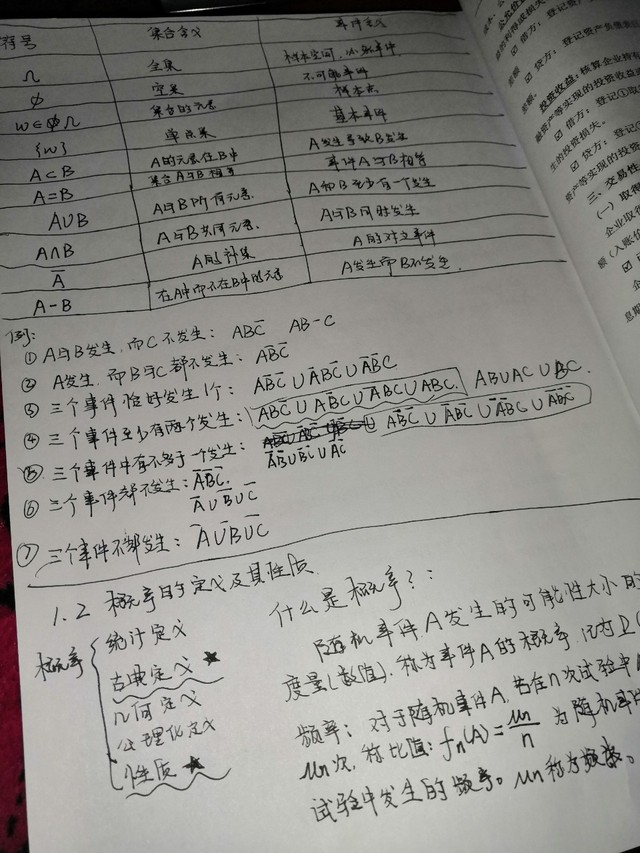 符号 集合含义 事件含义
Ω 全集 样本空间,必然事件
∅ 空集 不可能事件
ω∈∅Ω 集合的元素 样本点
{ω} 单点集 基本事件
A⊂B A的元素在B中 A发生导致B发生
A=B 集合A与B相等 事件A与B相等
A∪B A与B所有元素 A和B至少有一个发生
A∩B A与B共有元素 A与B同时发生
A̅ A的补集 A的对立事件
A-B 在A中而不在B中的元素 A发生而B不发生.
例:
① A与B发生,而C不发生: ABC̅ AB-C
② A发生,而B与C都不发生: AB̅C̅
③ 三个事件恰好发生1个: AB̅C̅∪A̅BC̅∪A̅B̅C
④ 三个事件至少有两个发生: ABC̅∪AB̅C∪A̅BC∪ABC. AB∪AC∪BC.
⑤ 三个事件中有不多于一个发生: AB̅C̅∪A̅BC̅∪A̅B̅C∪A̅B̅C̅
A̅B̅∪B̅C̅∪A̅C̅
⑥ 三个事件都不发生: A̅B̅C̅.
A̅∪B̅∪C̅
⑦ 三个事件不都发生: A̅∪B̅∪C̅
1.2 概率的定义及其性质
概率
统计定义
古典定义 ★
几何定义
公理化定义
性质 ★
什么是概率?:
随机事件A发生的可能性大小的
度量(数值),称为事件A的概率,记为
频率: 对于随机事件A,若在n次试验中
μn次,称比值: fn(A)=μn/n 为随机事件
试验中发生的频率。μn称为频数。
借方:登记
贷方:登记资产负债表
投资收益:核算企业持有
借方:登记①取
生的投资损失。
贷方:登记
资产等实现的投资收益
三、交易性
(一)取得
企业取得